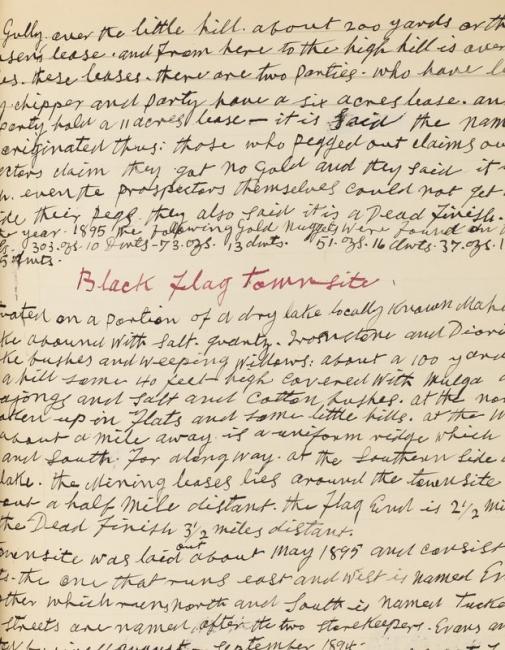 Gully. over the little hill. about 200 yards or th
lease. and from here to the high hill is over
these leases. there are two parties. who have
chipper and Party have a six acres lease. an
party hold a 11 acres lease – it is said the nam
originated thus: those who pegged out claims ou
claim they got no Gold and they said it
even the prospectors themselves could not get
their pegs. they also said it is a Dead finish.
year. 1895 the following Gold Nuggets were found
303.ozs. 10 dwts – 73.ozs. 13 dwts. 51.ozs. 16 dwts. 37.ozs. 1
dwts.
Black Flag Townsite
on a Portion of a dry lake locally Known
abound with Salt. quartz. Ironstone and Diori
the bushes and weeping willows: about a 100 yard
a hill some 40 feet high covered with Mulga
and Salt and Cotton bushes. at the no
up in flats and some little hills. at the W
about a mile away. is a uniform ridge which
and South for a long way. at the Southern Side
lake. the Mining leases lies around the townsite
out a half Mile distant. the flag End is 2 1/2 mi
the Dead Finish 3 1/2 miles distant.
ownsite was laid out about May 1895 and consist
ts. the one that runs east and West is named Ev
other which runs North and South is named Tucke
Streets are named after the two storekeepers. Evans an
August – September 1894.